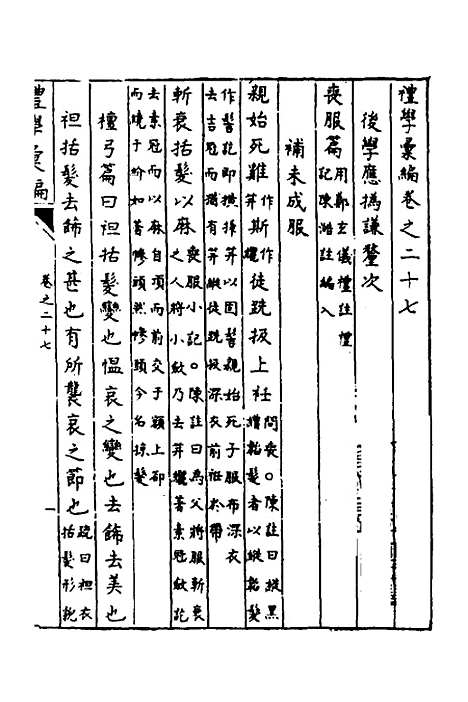 禮學彙編卷之二十七
後學應撝謙釐次
喪服篇用鄭玄儀禮註禮記陳澔註編入
補未成服
親始死雞笄作斯作纚徒跣扱上衽問喪○陳註曰縰黑繒韜髮者以縰韜髮
作髻訖即橫揷笄以固髻親始死子服布深衣去吉冠而猶有笄縰徒跣扱深衣前衽於帶
斬衰括髮以麻喪服小記○陳註曰為父將服斬衰之人將小斂乃去笄纚著素冠斂訖
去素冠而以麻自項而前交于額上郤而繞于紒如著幓頭然幓頭今名掠髮
檀弓篇曰袒括髮變也愠哀之變也去飾去美也
袒括髮去飾之甚也有所襲哀之節也疏曰袒衣括髮形貌
禮學彙編
卷之二十七
一